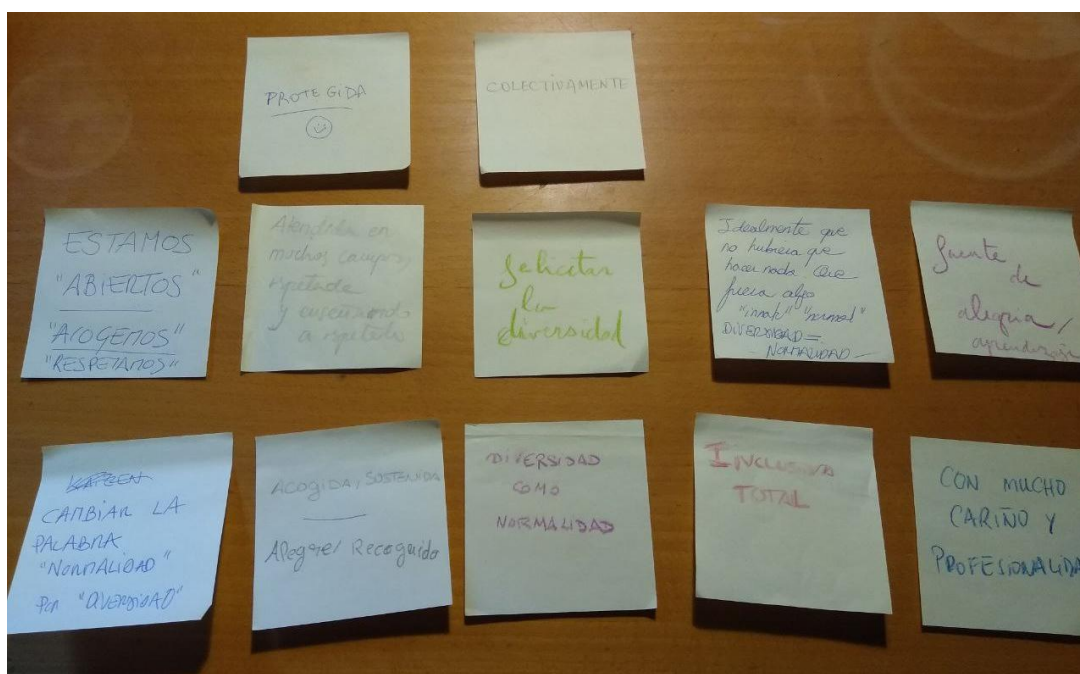 PROTEGIDA
COLECTIVAMENTE
ESTAMOS
"ABIERTOS"
"AcOGEMOS"
"RESPETAMOS"
Atendida en
muchos campos,
respetada
y enseñando
a respetarla
felicitar
la
diversidad
Idealmente que
no hubiera que
hacer nada. Que
fuera algo
"innato" "normal"
DIVERSIDAD =
NORMALIDAD
fuente
de
alegria /
aprendizaje
CAMBIAR LA
PALABRA
"NORMALIDAD"
POR "DIVERSIDAD"
ACOGIDA, SOSTENIDA
Alegre/ Recoguido
DIVERSIDAD
COMO
NORMALIDAD
INCLUSION
TOTAL
CON MUCHO
CARIÑO Y
PROFESIONALIDA